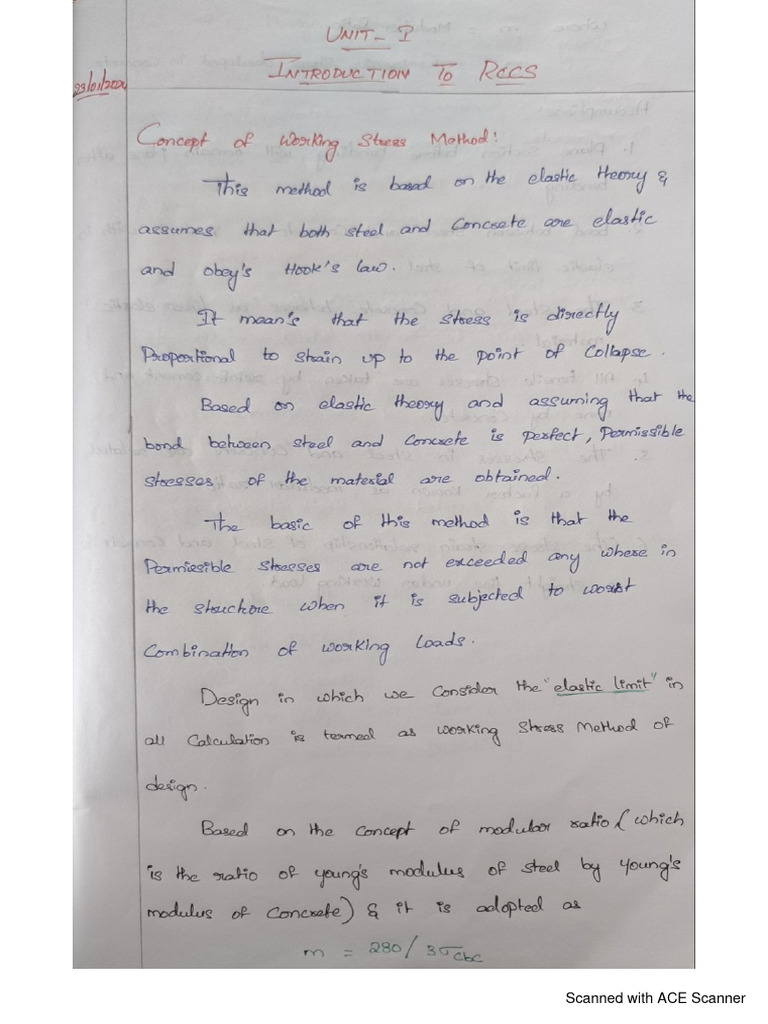 UNIT - I
INTRODUCTION TO RCCS
23/01/2024
Concept of Working Stress Method:
This method is based on the elastic theory &
assumes that both steel and Concrete are elastic
and obey's Hook's law.
It mean's that the stress is directly
Proportional to strain up to the point of Collapse.
Based on elastic theory and assuming that the
bond between steel and Concrete is perfect, Permissible
stresses of the material are obtained.
The basic of this method is that the
Permissible stresses are not exceeded any where in
the structure when it is subjected to worst
Combination of working loads.
Design in which we Consider the "elastic limit" in
all Calculation is termed as working stress Method of
design.
Based on the concept of modular ratio (which
is the ratio of young's modulus of steel by young's
modulus of Concrete) & it is adopted as
m = 280 / 3σcbc
Scanned with ACE Scanner